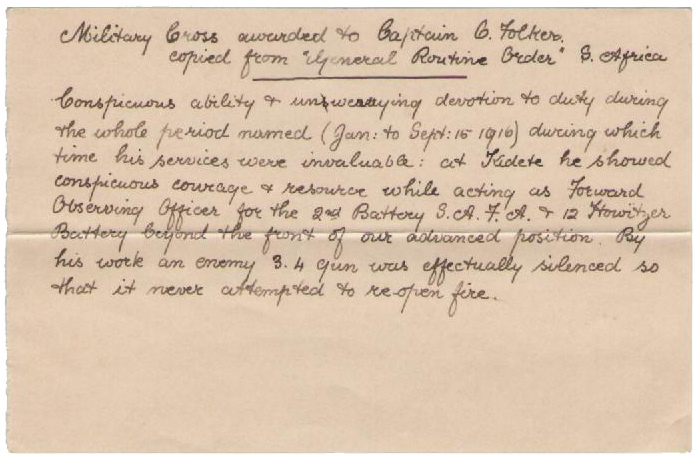 Military Cross awarded to Captain C. Folker.
copied from "General Routine Order" S. Africa
Conspicuous ability & unswerving devotion to duty during
the whole period named (Jan: to Sept: 15 1916) during which
time his services were invaluable: at Kidete he showed
conspicuous courage & resource while acting as Forward
Observing Officer for the 2nd Battery S.A.F.A. & 12 Howitzer
Battery beyond the front of our advanced position. By
his work an enemy 3.4 gun was effectually silenced so
that it never attempted to re-open fire.